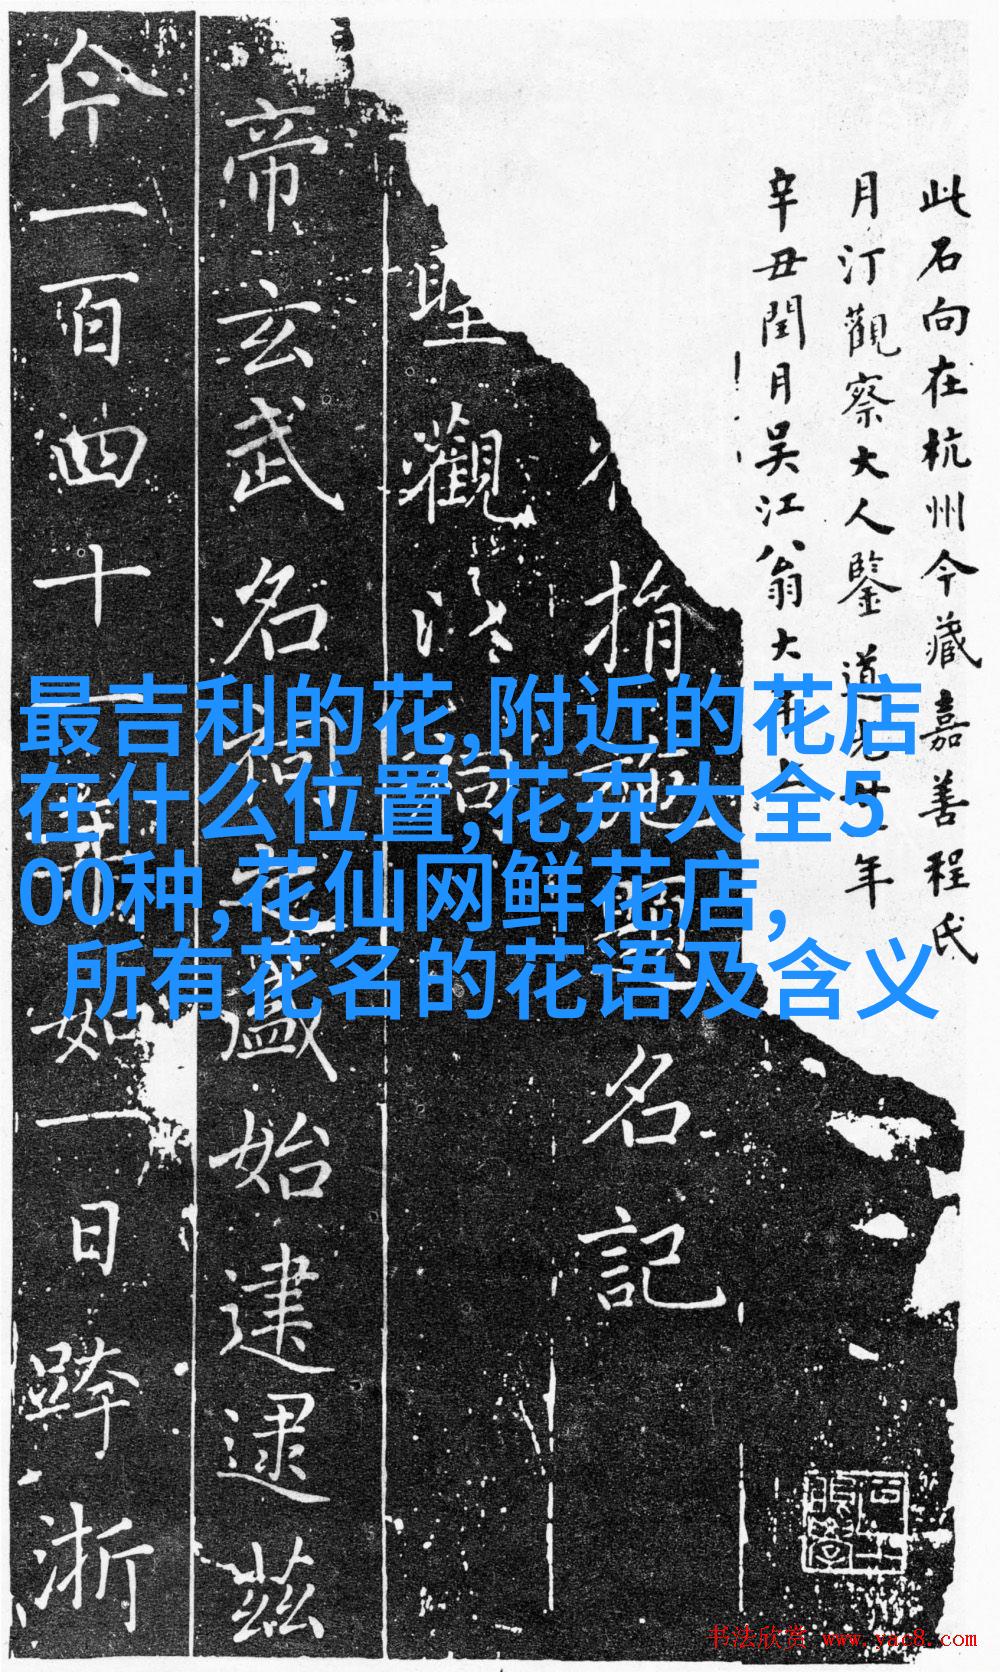 此石向在杭州今藏嘉善程氏
月汀觀察大人鑒 道光 年
辛丑閏月吳江翁大年
捐施題名記
聖觀
帝玄武名祠之盛始建逮茲
一百四十 年如一日跨浙
最吉利的花,附近的花店
在什么位置,花卉大全5
00种,花仙网鲜花店,
所有花名的花语及含义
书法欣赏 www.yac8.com